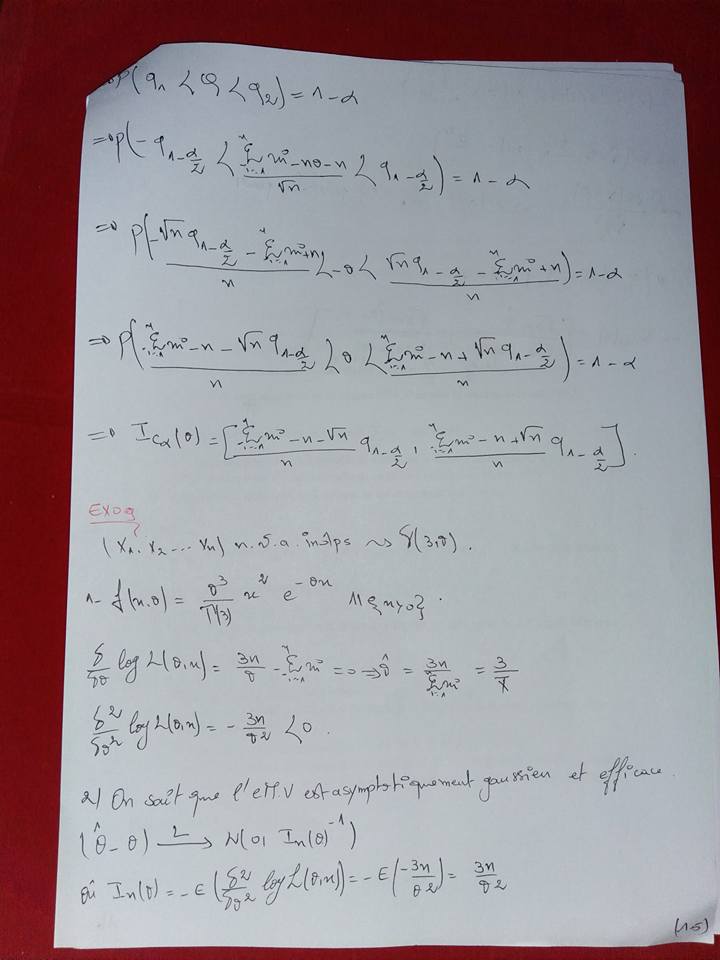 ⇒ P(q₁ < Q < q₂) = 1-α
⇒ P(-q_{1-α/2} < (Σ_{i=1}^{n} xi - nθ - n)/√n < q_{1-α/2}) = 1-α
⇒ P((-√n q_{1-α/2} - Σ_{i=1}^{n} xi + n)/n < -θ < (√n q_{1-α/2} - Σ_{i=1}^{n} xi + n)/n) = 1-α
⇒ P((Σ_{i=1}^{n} xi - n - √n q_{1-α/2})/n < θ < (Σ_{i=1}^{n} xi - n + √n q_{1-α/2})/n) = 1-α
⇒ I_{Cα}(θ) = [(Σ_{i=1}^{n} xi - n - √n)/n q_{1-α/2}, (Σ_{i=1}^{n} xi - n + √n)/n q_{1-α/2}].
EXO9
(X₁, X₂ ... Xn) n.v.a. indeps ~> γ(3,θ).
1- f(x.θ) = θ³/Γ(3) x² e^{-θx} 1{x>0}.
δ/δθ log L(θ,x) = 3n/θ - Σ_{i=1}^{n} xi = 0 ⇒ θ̂ = 3n/Σ_{i=1}^{n} xi = 3/X̄
δ²/δθ² log L(θ,x) = -3n/θ² < 0.
2) On sait que l'eMV est asymptotiquement gaussien et efficace.
(θ̂ - θ) →^{L} N(0, In(θ)⁻¹)
où In(θ) = -E(δ²/δθ² log L(θ,x)) = -E(-3n/θ²) = 3n/θ²
(15)